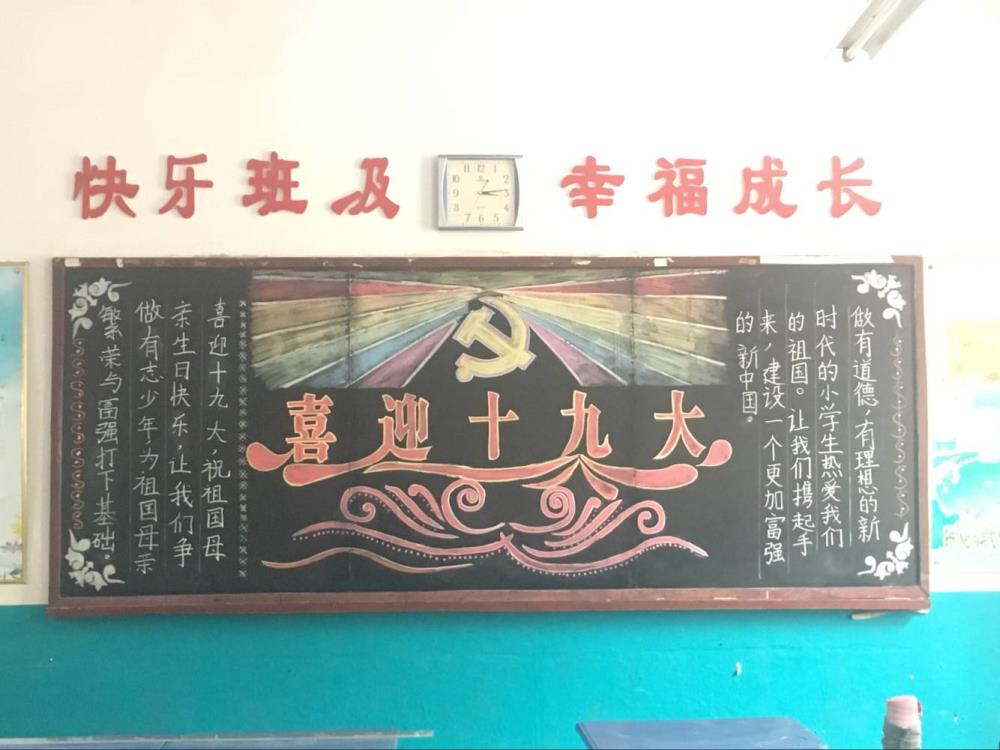 快乐班及
幸福成长
12 1 2 3 4 5 6 7 8 9 10 11
喜迎十九大
做有道德,有理想的新
时代的小学生热爱我们
的祖国。让我们携起手
来,建设一个更加富强
的新中国。
喜迎十九大,祝祖国母
亲生日快乐,让我们争
做有志少年,为祖国母亲
繁荣与富强打下基础.